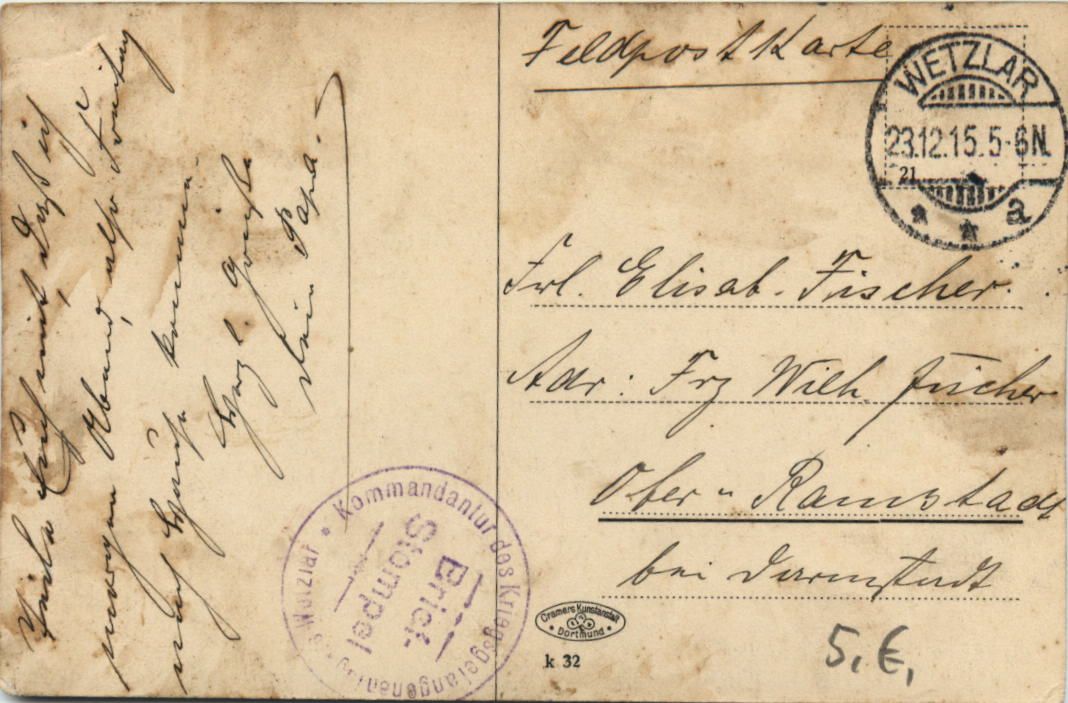 Teile Euch mit, daß ich
morgen Abend, also Freitag
nach Hause komme
Herzl. Grüße
dein Papa.
Feldpostkarte
WETZLAR
23.12.15.5-6N.
21
a
Frl. Elisab. Fischer.
Adr: Frz Wilh. Fischer
Ober-Ramstadt
bei Darmstadt
Kommandantur des Kriegsgefangenenlag Wetzlar
Brief-
Stempel
Cramers Kunstanstalt
Dortmund
k 32
5,€,